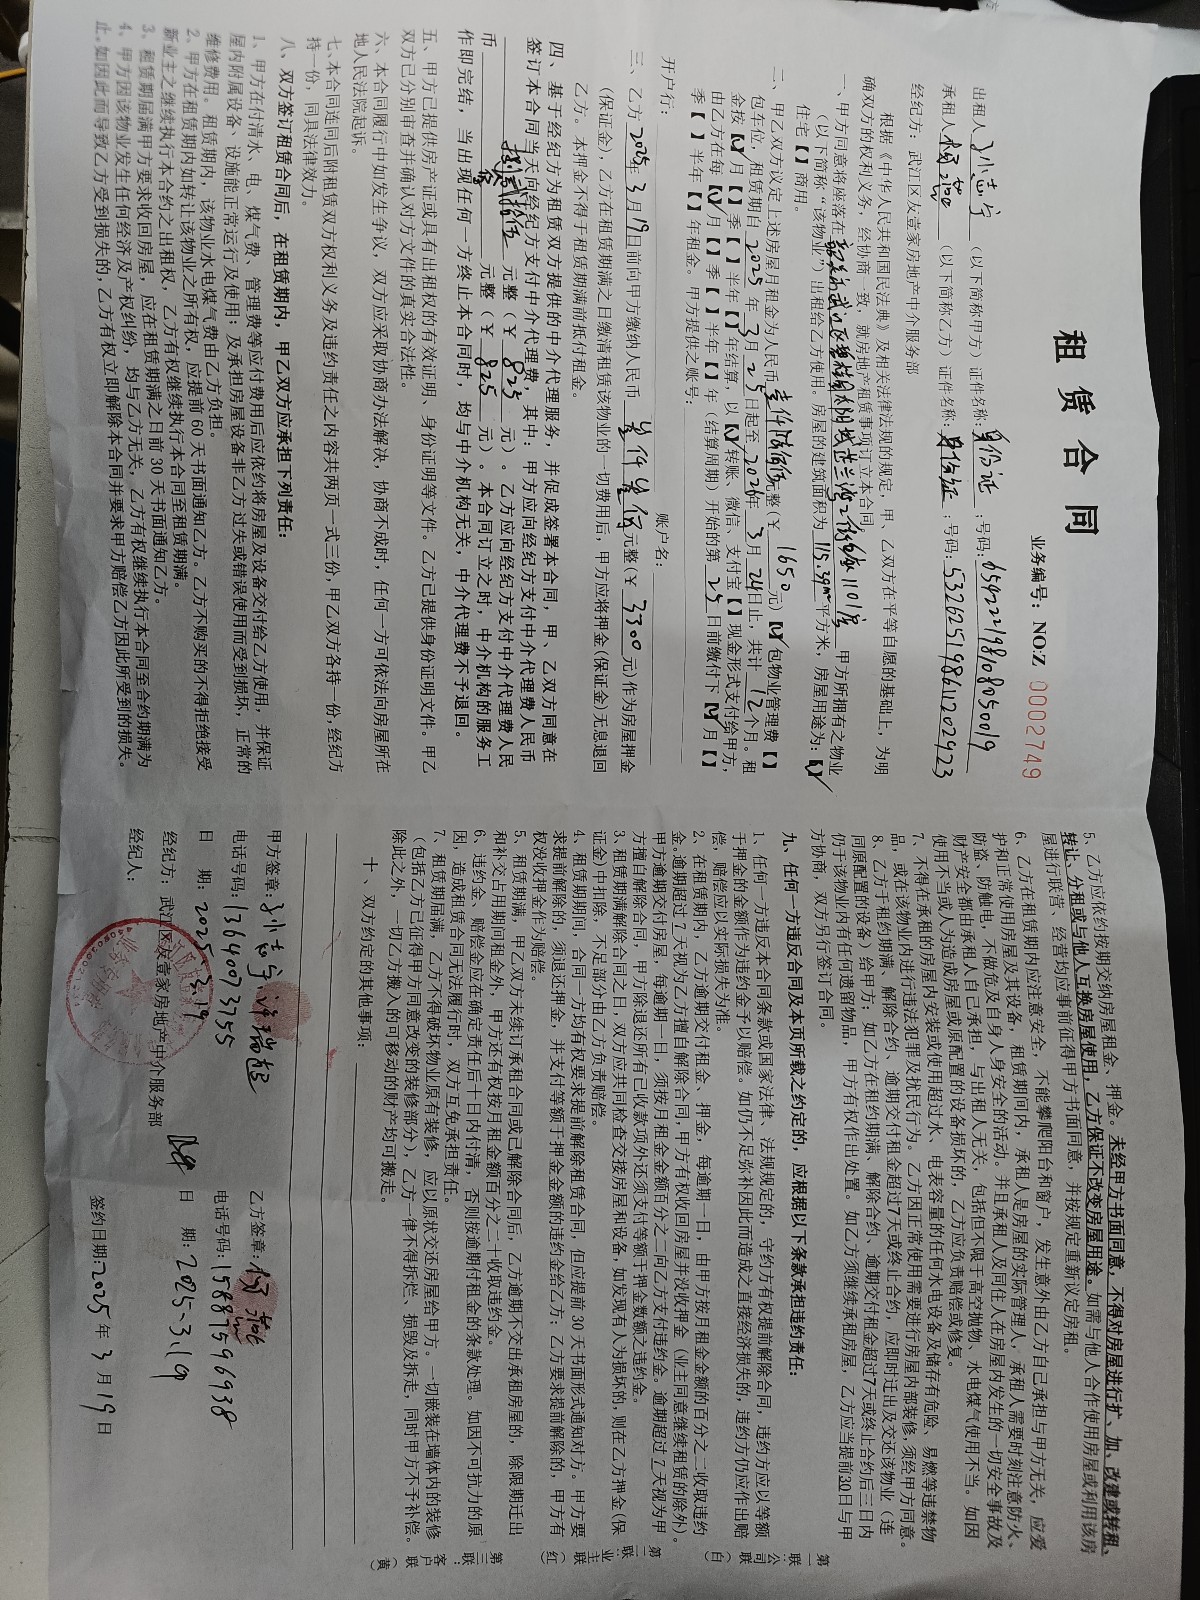 租 赁 合 同
业务编号：NO:Z 0002749
出租人 （以下简称甲方）证件名称：身份证；号码：659222198108050019
承租人 （以下简称乙方）证件名称：身份证；号码：532625198611202923
经纪方：武江区友壹家房地产中介服务部
根据《中华人民共和国民法典》及相关法律法规的规定，甲、乙双方在平等自愿的基础上，为明
确双方的权利义务，经协商一致，就房地产租赁事项订立本合同。
一、甲方同意将座落在 韶关市武江区碧桂园太阳城芷兰湾二街 1101房 甲方所拥有之物业
（以下简称“该物业”）出租给乙方使用。房屋的建筑面积为 115.39m² 平方米，房屋用途为：【√】
住宅【 】商用。
二、甲乙双方议定上述房屋月租金为人民币 壹仟陆佰伍 元整（￥ 1650 元）【√】包物业管理费【 】
包车位，租赁期自 2025 年 3 月 25 日起至 2026 年 3 月 24 日止，共计 12 个月。租
金按【√】月【 】季【 】半年【 】年结算，以【√】转账、微信、支付宝【 】现金形式支付给甲方，
由乙方在每【√】月【 】季【 】半年【 】年（结算周期）开始的第 25 日前缴付下【√】月【 】
季【 】半年【 】年租金。甲方提供之账号：
开户行： 账户名：
三、乙方 2025 年 3 月 19 日前向甲方缴纳人民币 叁仟叁佰 元整（￥ 3300 元）作为房屋押金
（保证金），乙方在租赁期满之日缴清租赁该物业的一切费用后，甲方应将押金（保证金）无息退回
乙方。本押金不得于租赁期满前抵付租金。
四、基于经纪方为租赁双方提供的中介代理服务，并促成签署本合同，甲、乙双方同意在
签订本合同当天向经纪方支付中介代理费，其中：甲方应向经纪方支付中介代理费人民币
捌佰贰拾伍 元整（￥ 825 元）。乙方应向经纪方支付中介代理费人民
币 元整（￥ 825 元）。本合同订立之时，中介机构的服务工
作即完结，当出现任何一方终止本合同时，均与中介机构无关，中介代理费不予退回。
五、甲方已提供房产证或具有出租权的有效证明、身份证明等文件。乙方已提供身份证明文件。甲乙
双方已分别审查并确认对方文件的真实合法性。
六、本合同履行中如发生争议，双方应采取协商办法解决，协商不成时，任何一方可依法向房屋所在
地人民法院起诉。
七、本合同连同后附租赁双方权利义务及违约责任之内容共两页一式三份，甲乙双方各持一份，经纪方
持一份，同具法律效力。
八、双方签订租赁合同后，在租赁期内，甲乙双方应承担下列责任：
1、甲方在付清水、电、煤气费、管理费等应付费用后应依约将房屋及设备交付给乙方使用，并保证
屋内附属设备、设施能正常运行及使用；及承担房屋设备非乙方过失或错误使用而受到损坏，正常的
维修费用。租赁期内，该物业水电煤气费由乙方负担。
2、甲方在租赁期内如转让该物业之所有权，应提前 60 天书面通知乙方。乙方不购买的不得拒绝接受
新业主之继续执行本合约之出租权，乙方有权继续执行本合同至租赁期满。
3、租赁期届满甲方要求收回房屋，应在租赁期满之日前 30 天书面通知乙方。
4、甲方因该物业发生任何经济及产权纠纷，均与乙方无关，乙方有权继续执行本合同至合约期满为
止。如因此而导致乙方受到损失的，乙方有权立即解除本合同并要求甲方赔偿乙方因此所受到的损失。
5、乙方应依约按期交纳房屋租金、押金。未经甲方书面同意，不得对房屋进行扩、加、改建或转租、
转让、分租或与他人互换房屋使用，乙方保证不改变房屋用途。如需与他人合作使用房屋或利用该房
屋进行联营、经营均应事前征得甲方书面同意，并按规定重新议定房租。
6、乙方在租赁期内应注意安全，不能攀爬阳台和窗户，发生意外由乙方自己承担与甲方无关，应爱
护和正常使用房屋及其设备，租赁期间内，承租人是房屋的实际管理人，承租人需要时刻注意防火、
防盗、防触电，不做危及自身人身安全的活动。并且承租人及同住人在房屋内发生的一切安全事故及
财产安全都由承租人自己承担，与出租人无关，包括但不限于高空抛物、水电煤气使用不当。如因
使用不当或人为造成房屋或原配置的设备损坏的，乙方应负责赔偿或修复。
7、不得在承租的房屋内安装或使用超过水、电表容量的任何水电设备及储存有危险、易燃等违禁物
品，或在该物业内进行违法犯罪及扰民行为。乙方因正常使用需要进行房屋内部装修，须经甲方同意。
8、乙方于租约期满、解除合约、逾期交付租金超过7天或终止合约，应即时迁出及交还该物业（连
同原配置的设备）给甲方；如乙方在租约期满、解除合约、逾期交付租金超过7天或终止合约后三日内
仍于该物业内有任何遗留物品，甲方有权作出处置。如乙方须继续承租房屋，乙方应当提前30日与甲
方协商，双方另行签订合同。
九、任何一方违反合同及本页所载之约定的，应根据以下条款承担违约责任：
1、任何一方违反本合同条款或国家法律、法规规定的，守约方有权提前解除合同，违约方应以等额
于押金的金额作为违约金予以赔偿。如仍不足弥补因此而造成之直接经济损失的，违约方仍应作出赔
偿，赔偿应以实际损失为准。
2、在租赁期内，乙方逾期交付租金、押金，每逾期一日，由甲方按月租金金额的百分之二收取违约
金。逾期超过 7 天视为乙方擅自解除合同，甲方有权收回房屋并没收押金（业主同意继续租赁的除外）。
甲方逾期交付房屋，每逾期一日，须按月租金金额百分之二向乙方支付违约金。逾期超过 7 天视为甲
方擅自解除合同，甲方除退还所有已收款项外还须支付等额于押金数额之违约金。
3、租赁期满解除合同之日，双方应共同检查交接房屋和设备，如发现有人为损坏的，则在乙方押金（保
证金）中扣除，不足部分由乙方负责赔偿。
4、租赁期期间，合同一方均有权要求提前解除租赁合同，但应提前 30 天书面形式通知对方。甲方要
求提前解除的，须退还押金，并支付等额于押金金额的违约金给乙方；乙方要求提前解除的，甲方有
权没收押金作为赔偿。
5、租赁期满，甲乙双方未续订承租合同或已解除合同后，乙方逾期不交出承租房屋的，除限期迁出
和补交占用期间租金外，甲方还有权按月租金额百分之二十收取违约金。
6、违约金、赔偿金应在确定责任后十日内付清，否则按逾期付租金的条款处理。如因不可抗力的原
因，造成租赁合同无法履行时，双方互免承担责任。
7、租赁期届满，乙方不得破坏物业原有装修，应以原状交还房屋给甲方。一切嵌装在墙体内的装修
（包括乙方已征得甲方同意改变的装修部分），乙方一律不得拆烂、损毁及拆走，同时甲方不予补偿。
除此之外，一切乙方搬入的可移动的财产均可搬走。
十、双方约定的其他事项：
甲方签章： 乙方签章：
电话号码：13640073755 电话号码：15887596938
日 期：2025.3.19 日 期：2025-3.19
经纪方：武江区友壹家房地产中介服务部
经纪人： 签约日期：2025 年 3 月 19 日
第一联：公司联（白）
第二联：业主联（红）
第三联：客户联（黄）